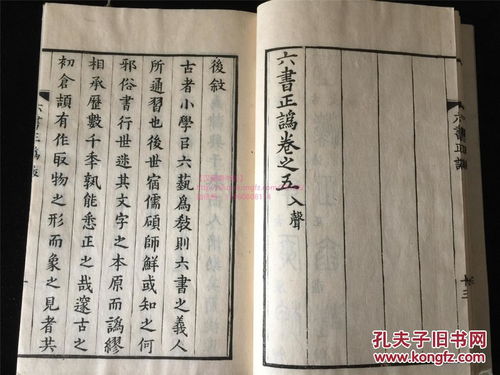 六書正譌卷之五 入聲
後敘
古者小學㠯六藝爲敎則六書之義人
所通習也後世宿儒碩師鮮或知之何
邪俗書行世迷其文字之本原而譌繆
相承歷數千秊孰能悉正之哉邃古之
初倉頡有作取物之形而象之見者共
六書正譌
孔夫子旧书网
www.kongfz.com